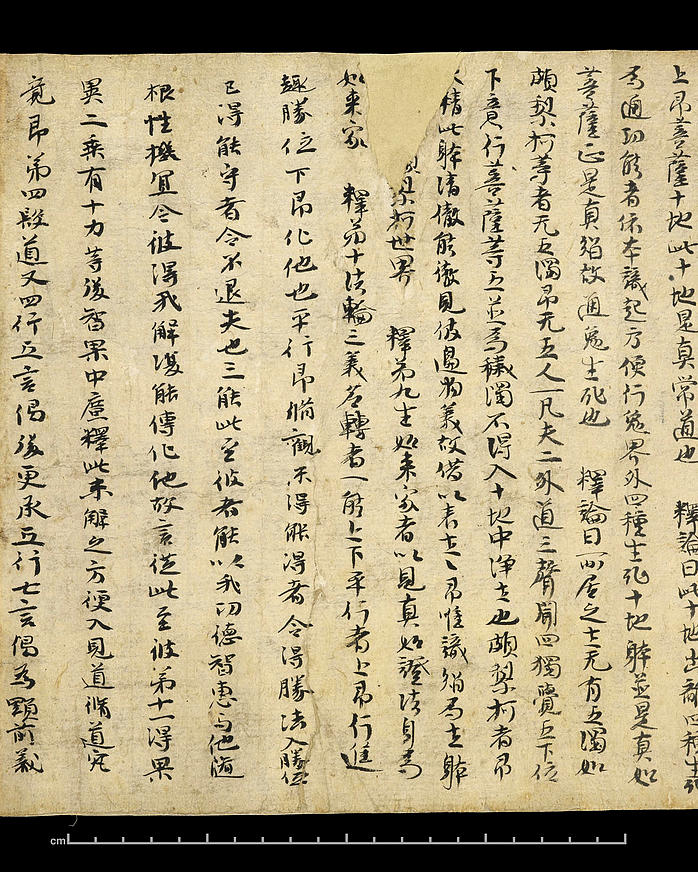 上昂菩薩十地此十地是真常道也 釋論曰此十地出離四種生死
為通功能者依本識起方便行兔界外四種生死十地躰並是真如
菩薩正是真如故通兔生死也 釋論曰所居之土无有五濁如
頗梨柯等者无五濁昂无五人一凡夫二外道三聲聞四獨覺五下位
下意行菩薩等五並為穢濁不得入十地中淨土也頗梨柯者昂
精此躰清徹能徹見彼邊物義故借以表土土昂惟識智為土躰
梨柯世界 釋苐九生如来家者以見真如證法身為
如来家 釋苐十法輪三義苻轉者一能上下平行者上昂行進
趣勝位下昂化他也平行昂脩觀未得能得者令得勝法入勝位
已得能守者令不退失也三能此至彼者能以我功德智惠与他随
根性機宜令彼得我解復能傳化他故言從此至彼苐十一得果
異二乘有十力等後智果中廣釋此未解之方便入見道脩道究
竟昂苐四段道又四行五言偈後更承五行七言偈為顯前義